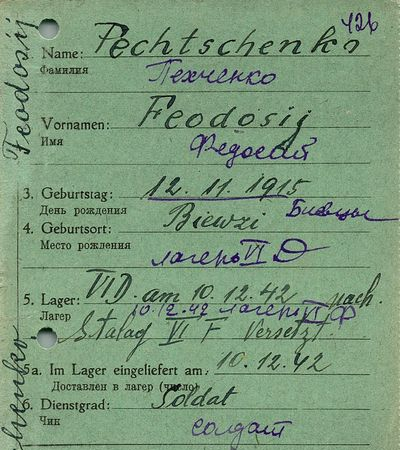 426
Name: Pechtschenko
Фамилия Пехченко
Vornamen: Feodosij
Имя Федосий
3. Geburtstag: 12. 11. 1915
День рождения
4. Geburtsort: Biewzi Биевцы
Место рождения
лагерь VI D
5. Lager: VI D. am 10.12.42 nach
Лагерь 10.12.42 лагерь VI Ф
Stalag VI F versetzt.
5a. Im Lager eingeliefert am: 10.12.42
Доставлен в лагерь (число)
6. Dienstgrad: Soldat
Чин солдат
Feodosij
henko